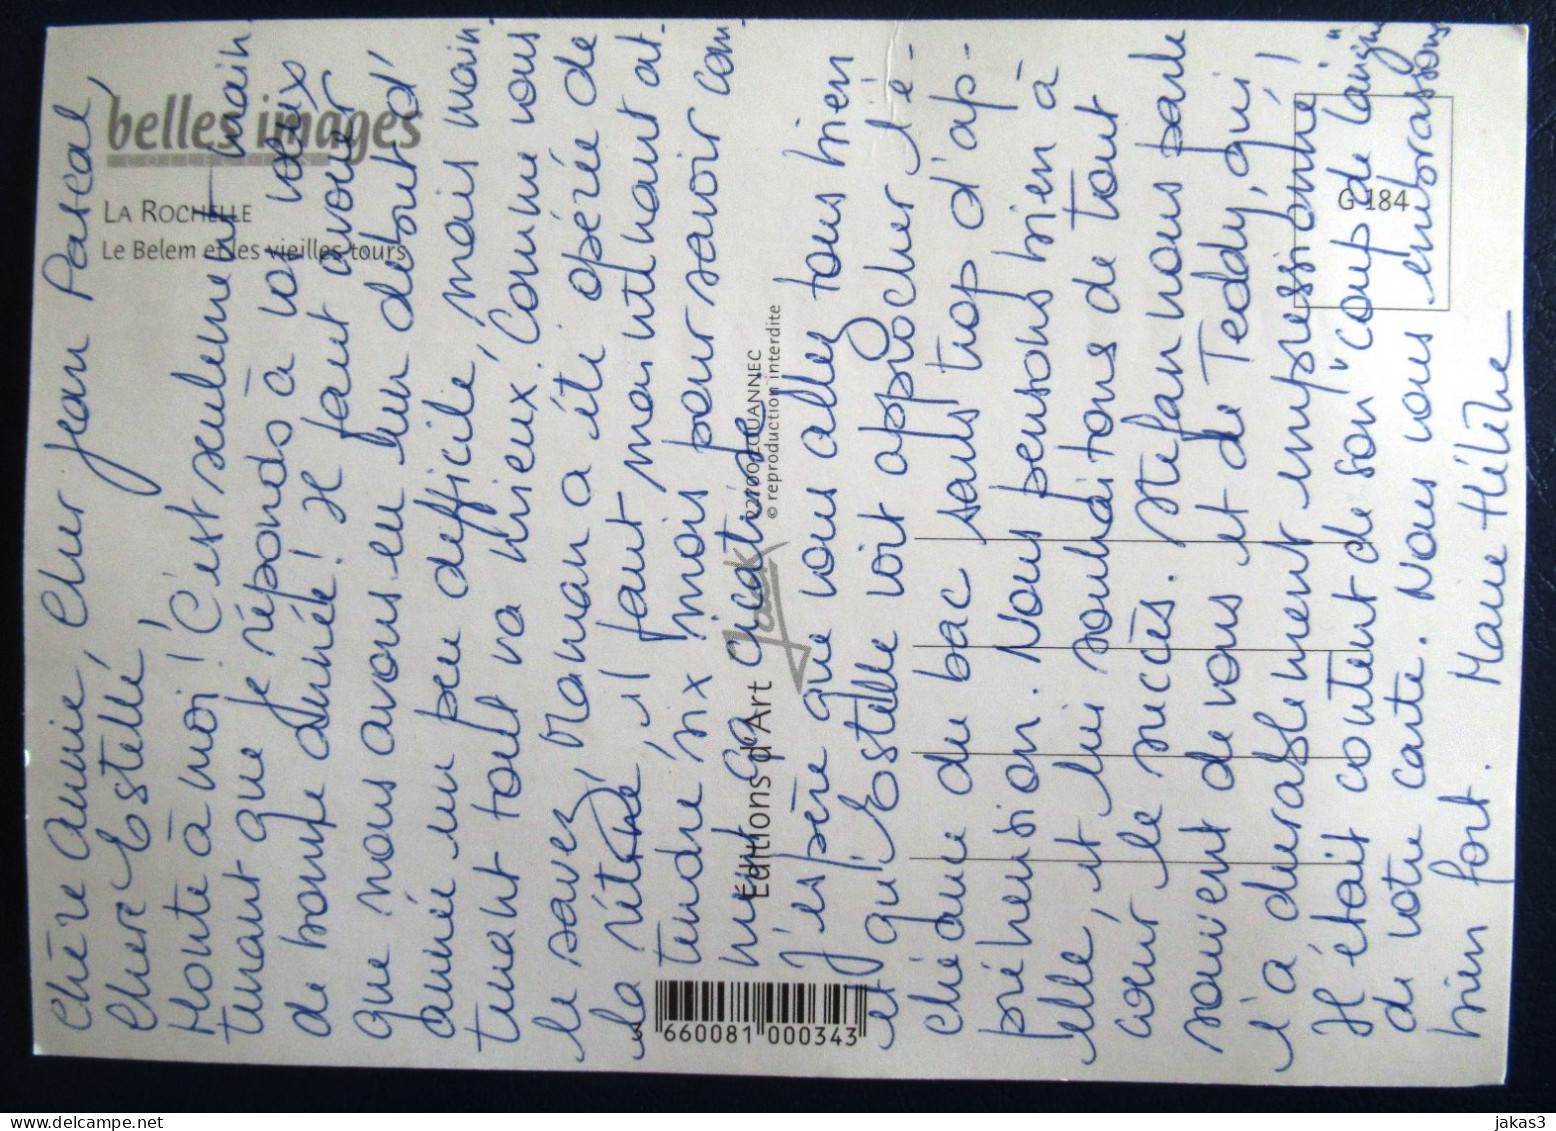 belles images
LA ROCHELLE
Le Belem et les vieilles tours
Editions d'Art Jack
22700 LOUANNEC
© reproduction interdite
G 184
3 660081 000343
Chère Annie, Cher Jean Pascal,
Chère Estelle,
Honte à moi ! C'est seulement main
tenant que je réponds à vos vœux
de bonne année ! Il faut avouer
que nous avons eu un début d'
année un peu difficile, mais main
tenant tout va mieux. Comme vous
le savez, Maman a été opérée de
la rétine, il faut maintenant at-
tendre six mois pour savoir com
ment ça cicatrise.
J'espère que vous allez tous bien
et qu'Estelle voit approcher l'é-
chéance du bac sans trop d'ap-
préhension. Nous pensons bien à
elle, et lui souhaitons de tout
cœur le succès. Stefan nous parle
souvent de vous et de Teddy, qui
l'a durablement impressionné !
Il était content de son "coup de langue"
de votre carte. Nous vous embrassons
bien fort. Marie Hélène
jakas3